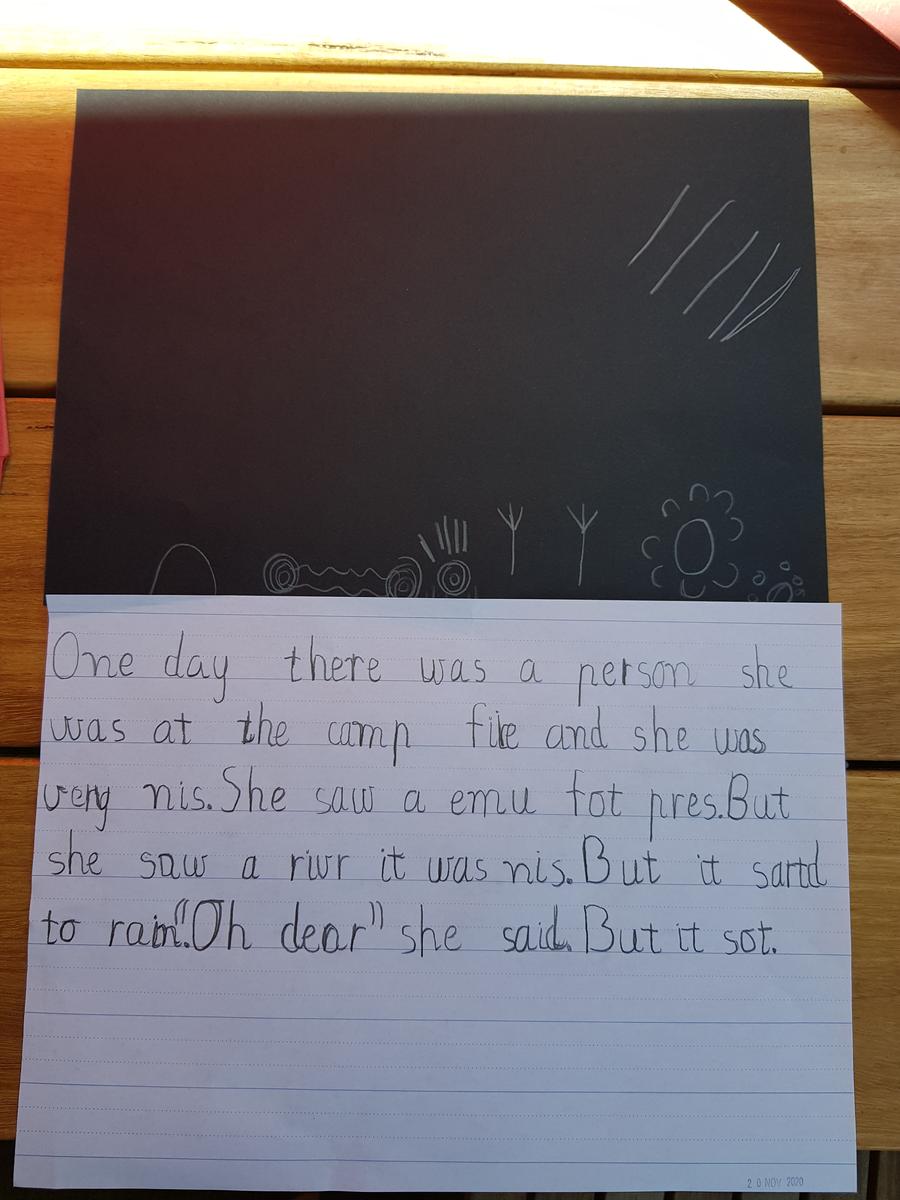 One day there was a person she
was at the camp fire and she was
very nis. She saw a emu fot pres. But
she saw a rivr it was nis. But it sartd
to rain. "Oh dear" she said. But it sot.
20 NOV 2020